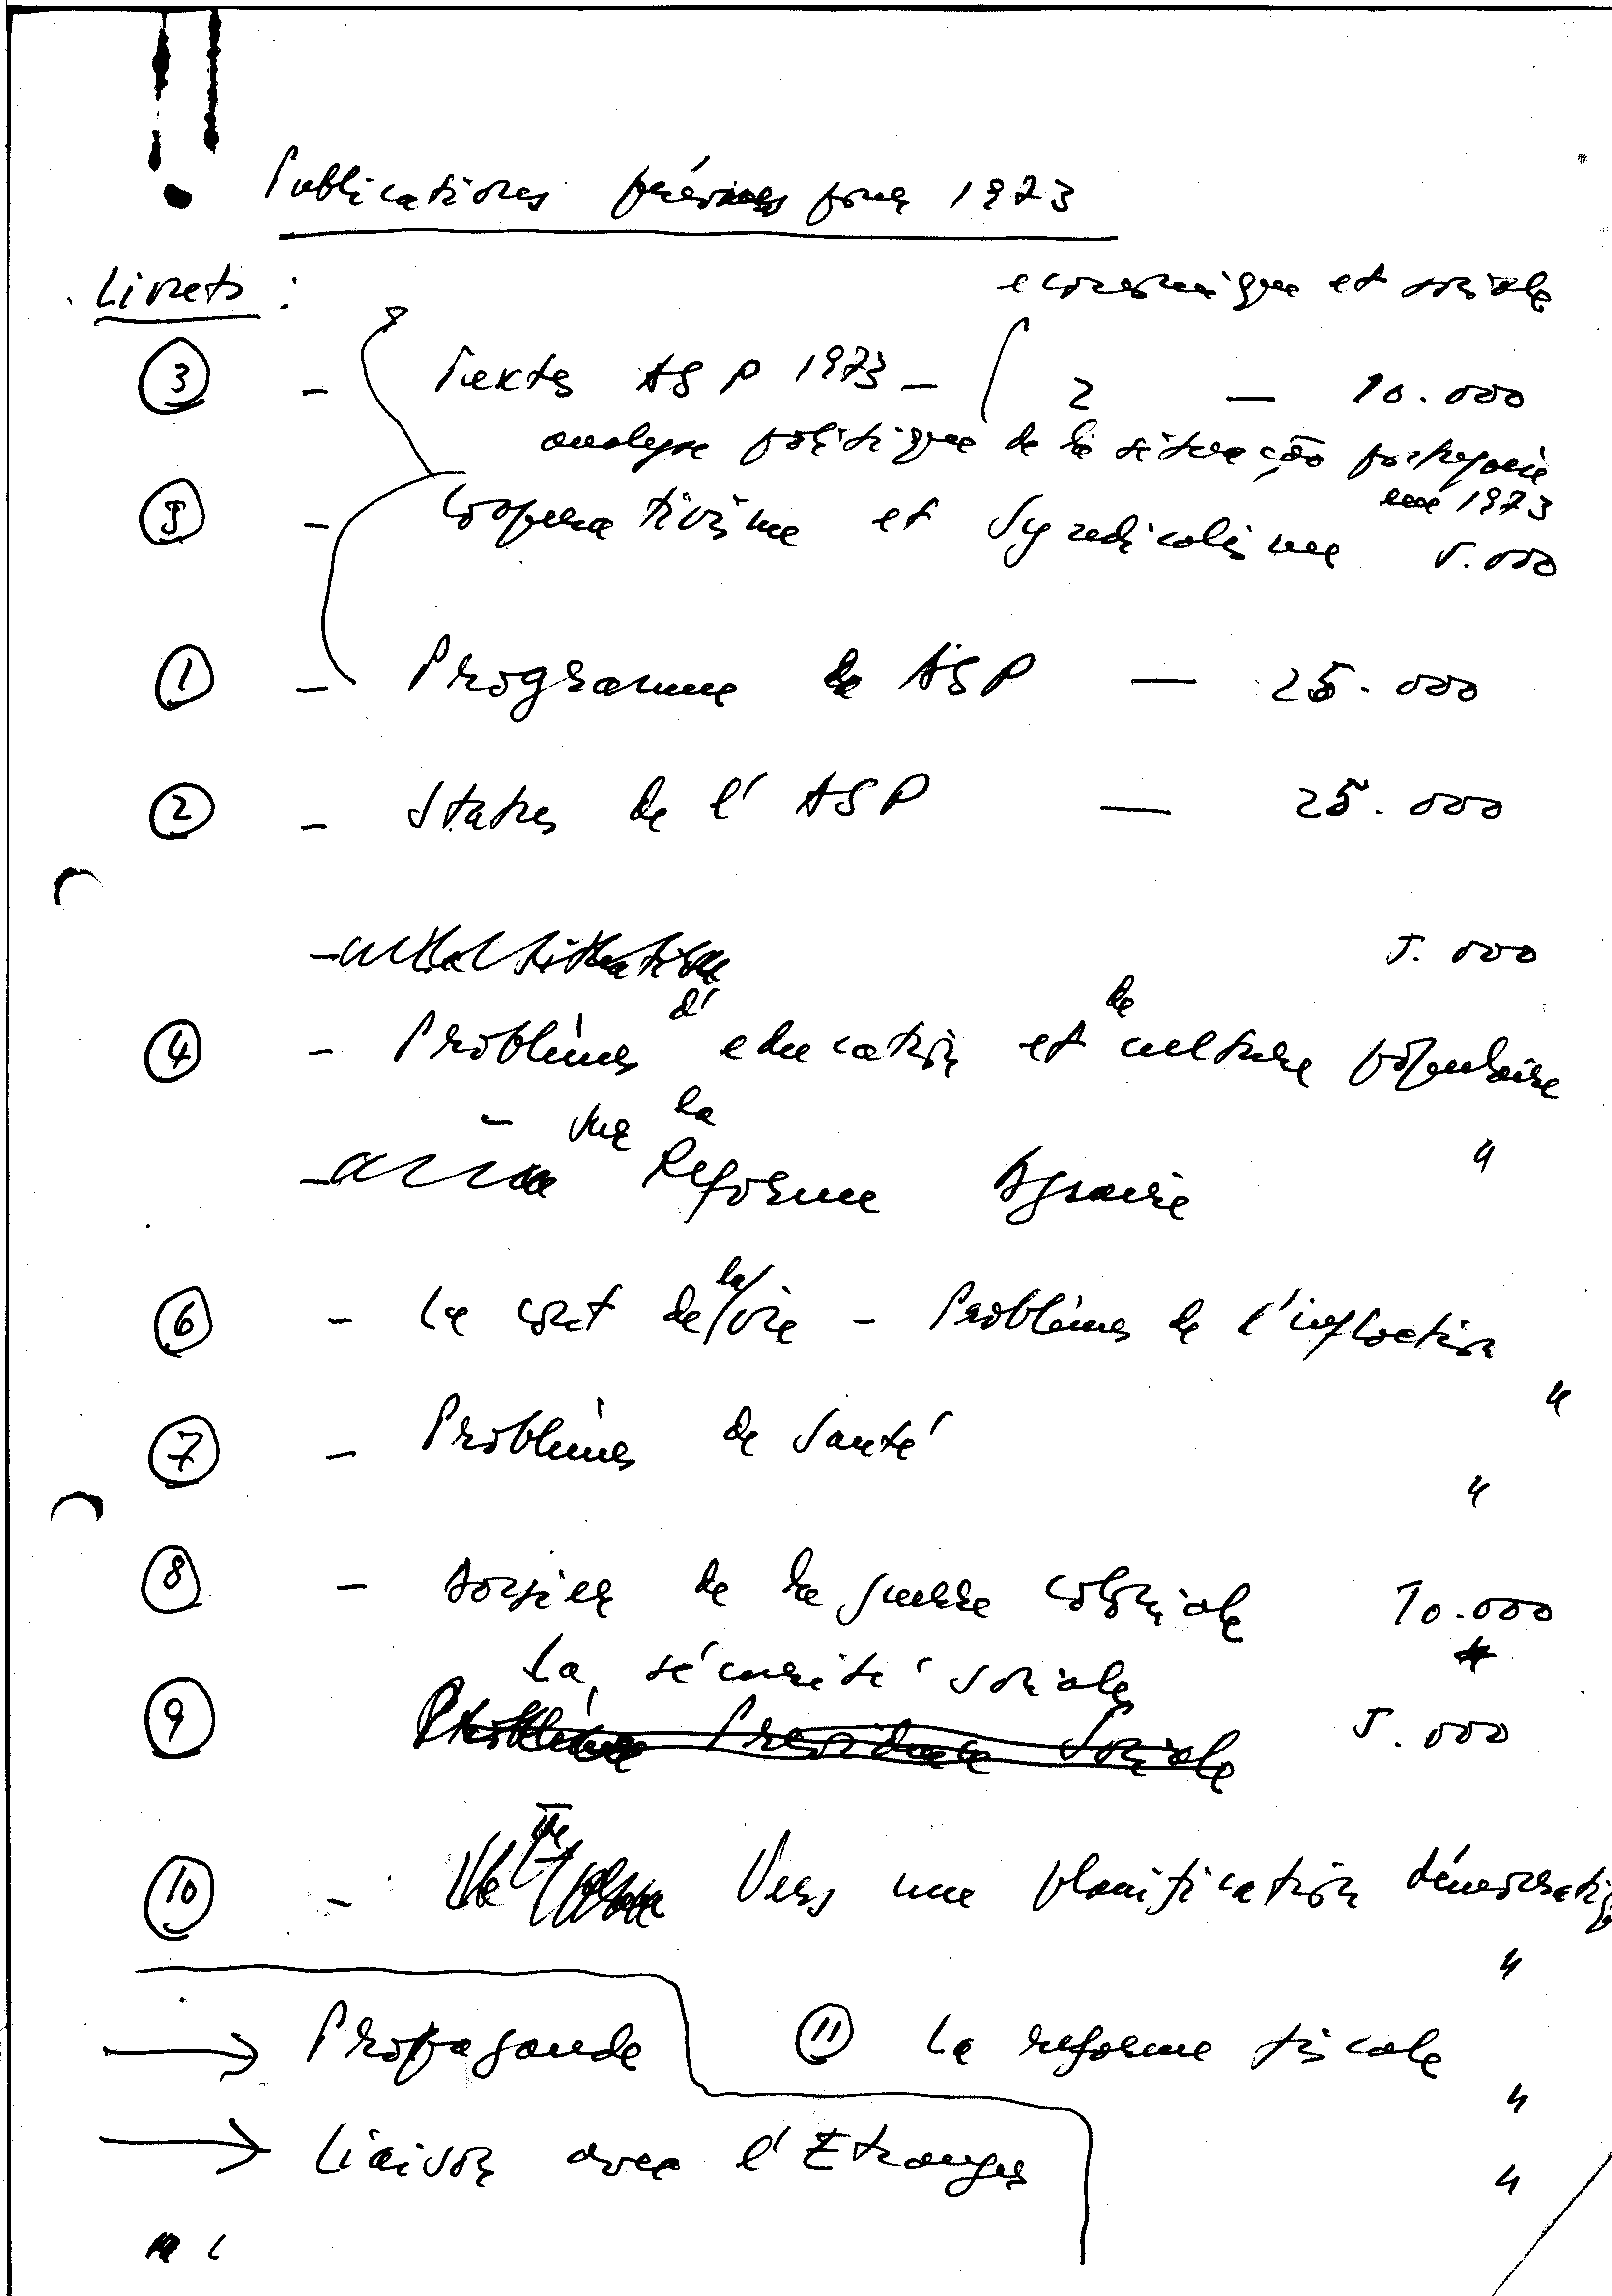 Publications prévues pour 1973
Livrets :
economique et sociale
③ - Textes ASP 1973 - 2 — 10.000
analyse politique de la situação portugaise
en 1973
⑤ - Cooperativisme et Syndicalisme 5.000
① - Programme de ASP — 25.000
② - Statuts de l'ASP — 25.000
5.000
④ - Problèmes d'education et de culture populaire
- Sur la Reforme Agraire "
⑥ - Le cout de la vie - Problèmes de l'inflaction
"
⑦ - Problèmes de Santé
"
⑧ - Dossier de la guerre coloniale 10.000
La sécurité sociale
⑨ Problème Previdence Sociale 5.000
⑩ - Vers une planification démocratiq
"
→ Propagande ⑪ La reforme fiscale
"
→ Liaison avec l'Etranger
"